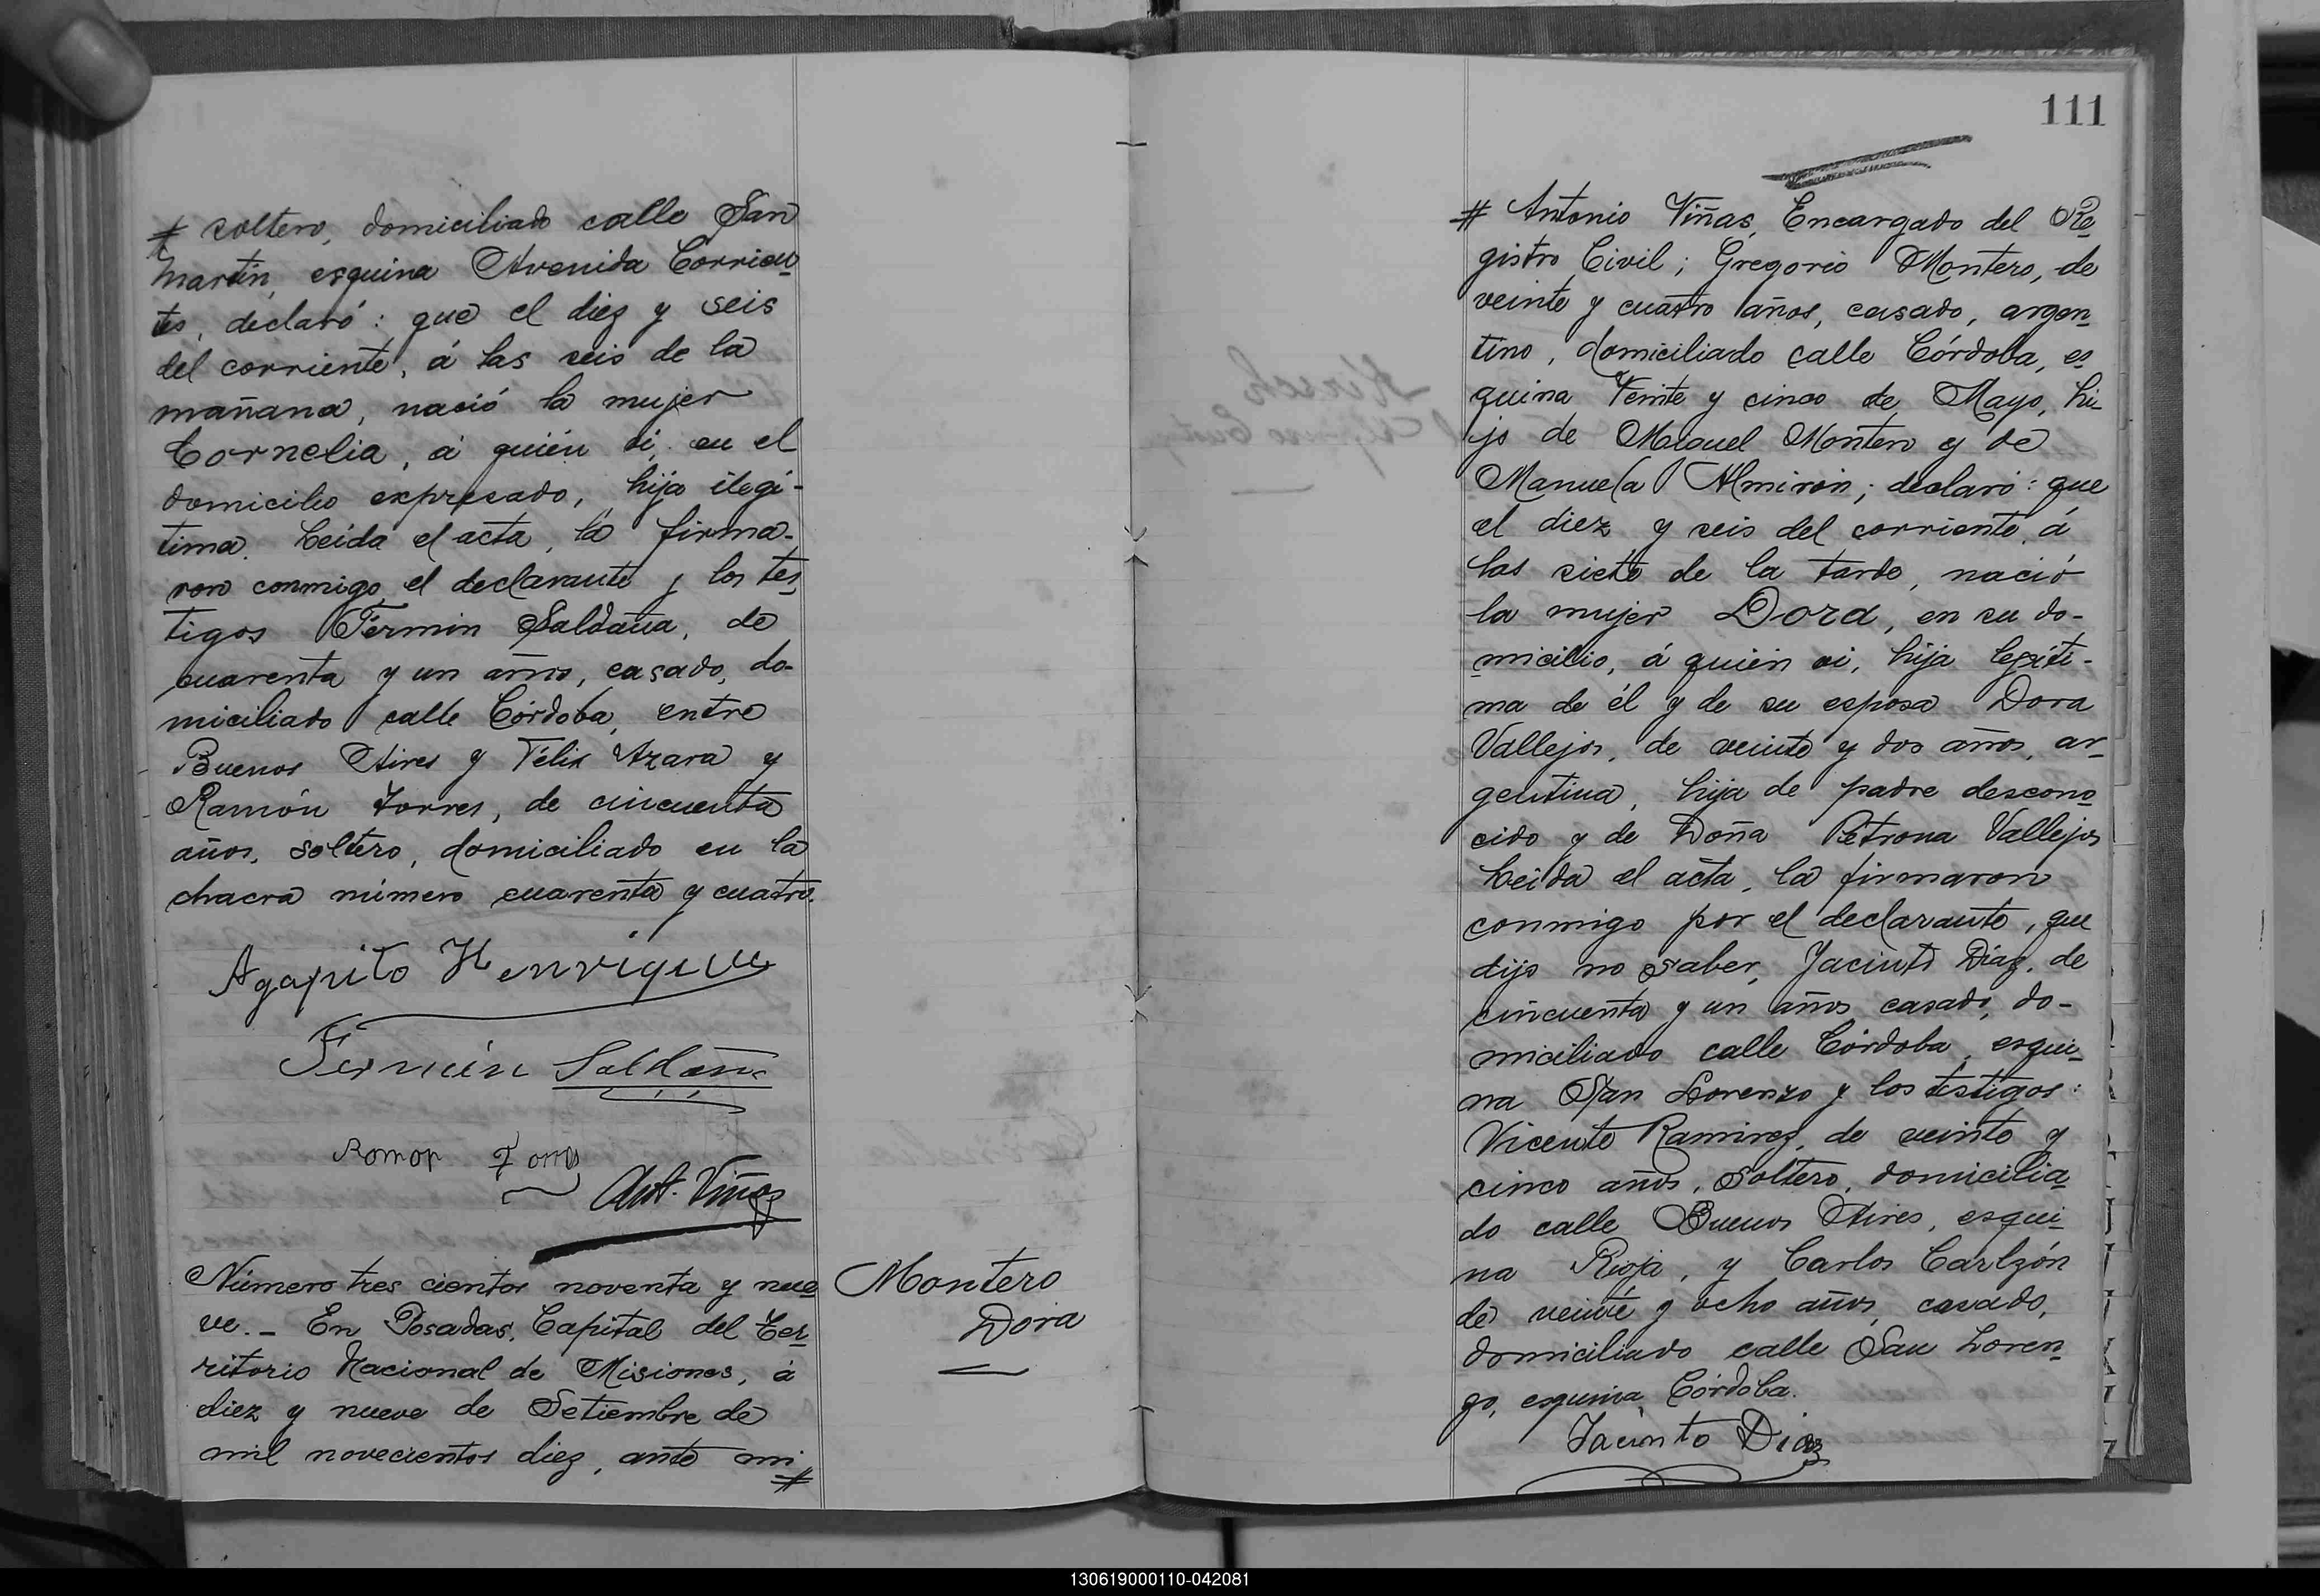 # soltero, domiciliado calle San
Martín, esquina Avenida Corrien
tes, declaró: que el diez y seis
del corriente, á las seis de la
mañana, nació la mujer
Cornelia, á quién vi, en el
domicilio expresado, hija ilegí-
tima. Leída el acta, la firma-
ron conmigo el declarante y los tes
tigos Fermin Saldaña, de
cuarenta y un años, casado, do-
miciliado calle Córdoba, entre
Buenos Aires y Félix Azara y
Ramón Torres, de cincuenta
años, soltero, domiciliado en la
chacra número cuarenta y cuatro.
Agapito Henrique
Fermín Saldaña
Ramon Torres
Ant. Viñas
Número tres cientos noventa y nue
ve.- En Posadas, Capital del Ter
ritorio Nacional de Misiones, á
diez y nueve de Setiembre de
mil novecientos diez, ante mi
#
Montero
Dora
111
# Antonio Viñas, Encargado del Re
gistro Civil; Gregorio Montero, de
veinte y cuatro años, casado, argen
tino, domiciliado calle Córdoba, es
quina Veinte y cinco de Mayo, hi-
jo de Miguel Montero y de
Manuela Almirón; declaró: que
el diez y seis del corriente, á
las siete de la tarde, nació
la mujer Dora, en su do-
micilio, á quién vi, hija legíti-
ma de él y de su esposa Dora
Vallejos, de veinte y dos años, ar
gentina, hija de padre descono
cido y de Doña Petrona Vallejos
Leída el acta, la firmaron
conmigo por el declarante, que
dijo no saber, Jacinto Díaz, de
cincuenta y un años, casado, do-
miciliado calle Córdoba, esqui-
na San Lorenzo y los testigos:
Vicente Ramirez, de veinte y
cinco años, soltero, domicilia
do calle Buenos Aires, esqui-
na Rioja, y Carlos Carlzón
de veinte y ocho años, casado,
domiciliado calle San Loren
zo, esquina Córdoba.
Jacinto Diaz
130619000110-042081